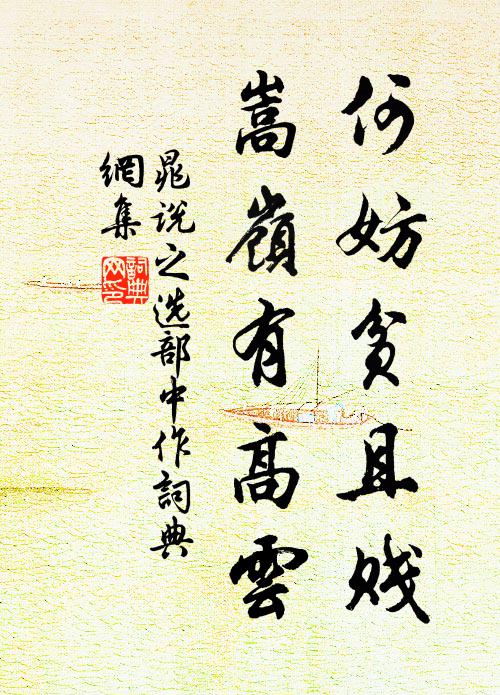 何妨贫且贱
嵩嶺有高雲
晁说之选部中作詞典
網集
詞典网印